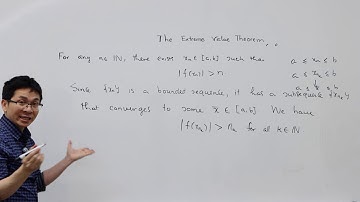 The Extreme Value Theorem
For any n ∈ ℕ, there exists xₙ ∈ [a,b] such that a ≤ xₙ ≤ b
|f(xₙ)| > n a ≤ xₙ ≤ b
Since {xₙ} is a bounded sequence, it has a subsequence
that converges to some x ∈ [a,b]. We have
|f(xₙₖ)| > nₖ for all k ∈ ℕ